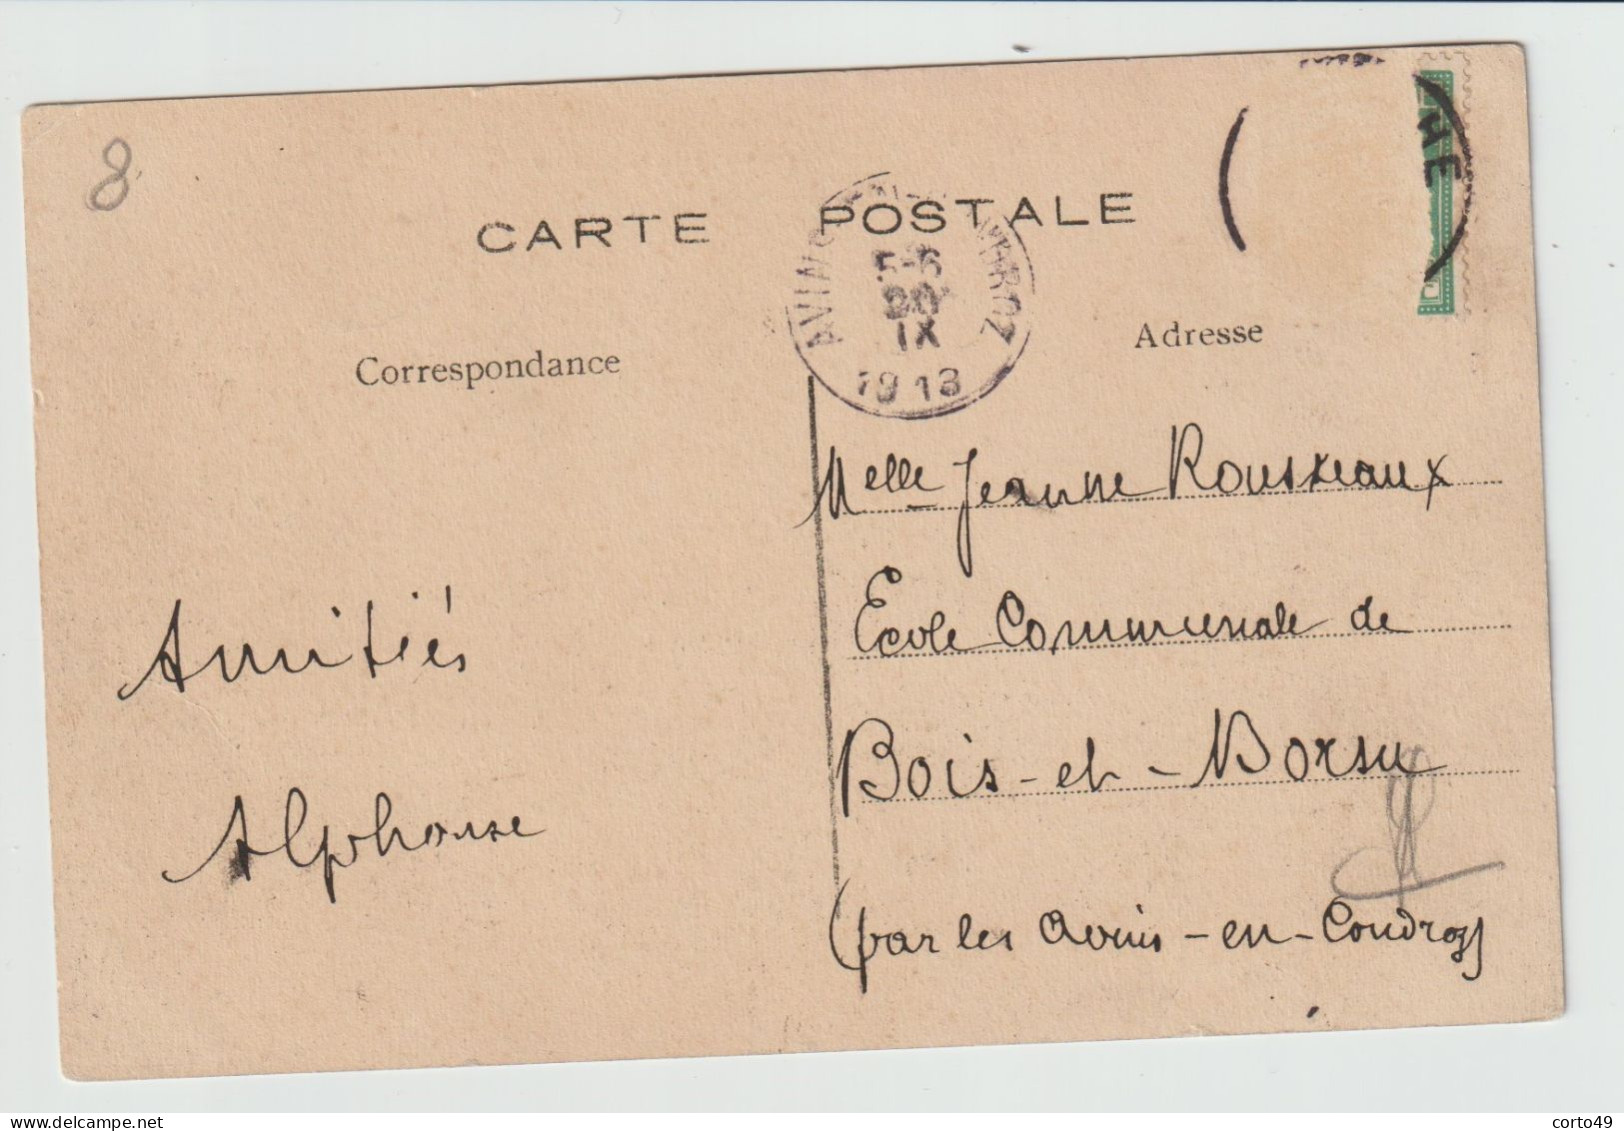 8
CARTE POSTALE
HE
AVINS-EN-CONDROZ
5-6
20
IX
1913
Correspondance
Adresse
Melle Jeanne Rousseaux
Ecole Communale de
Bois-et-Borsu
(par les Avins-en-Condroz)
Amitiés
Alphonse
delcampe.net
corto49